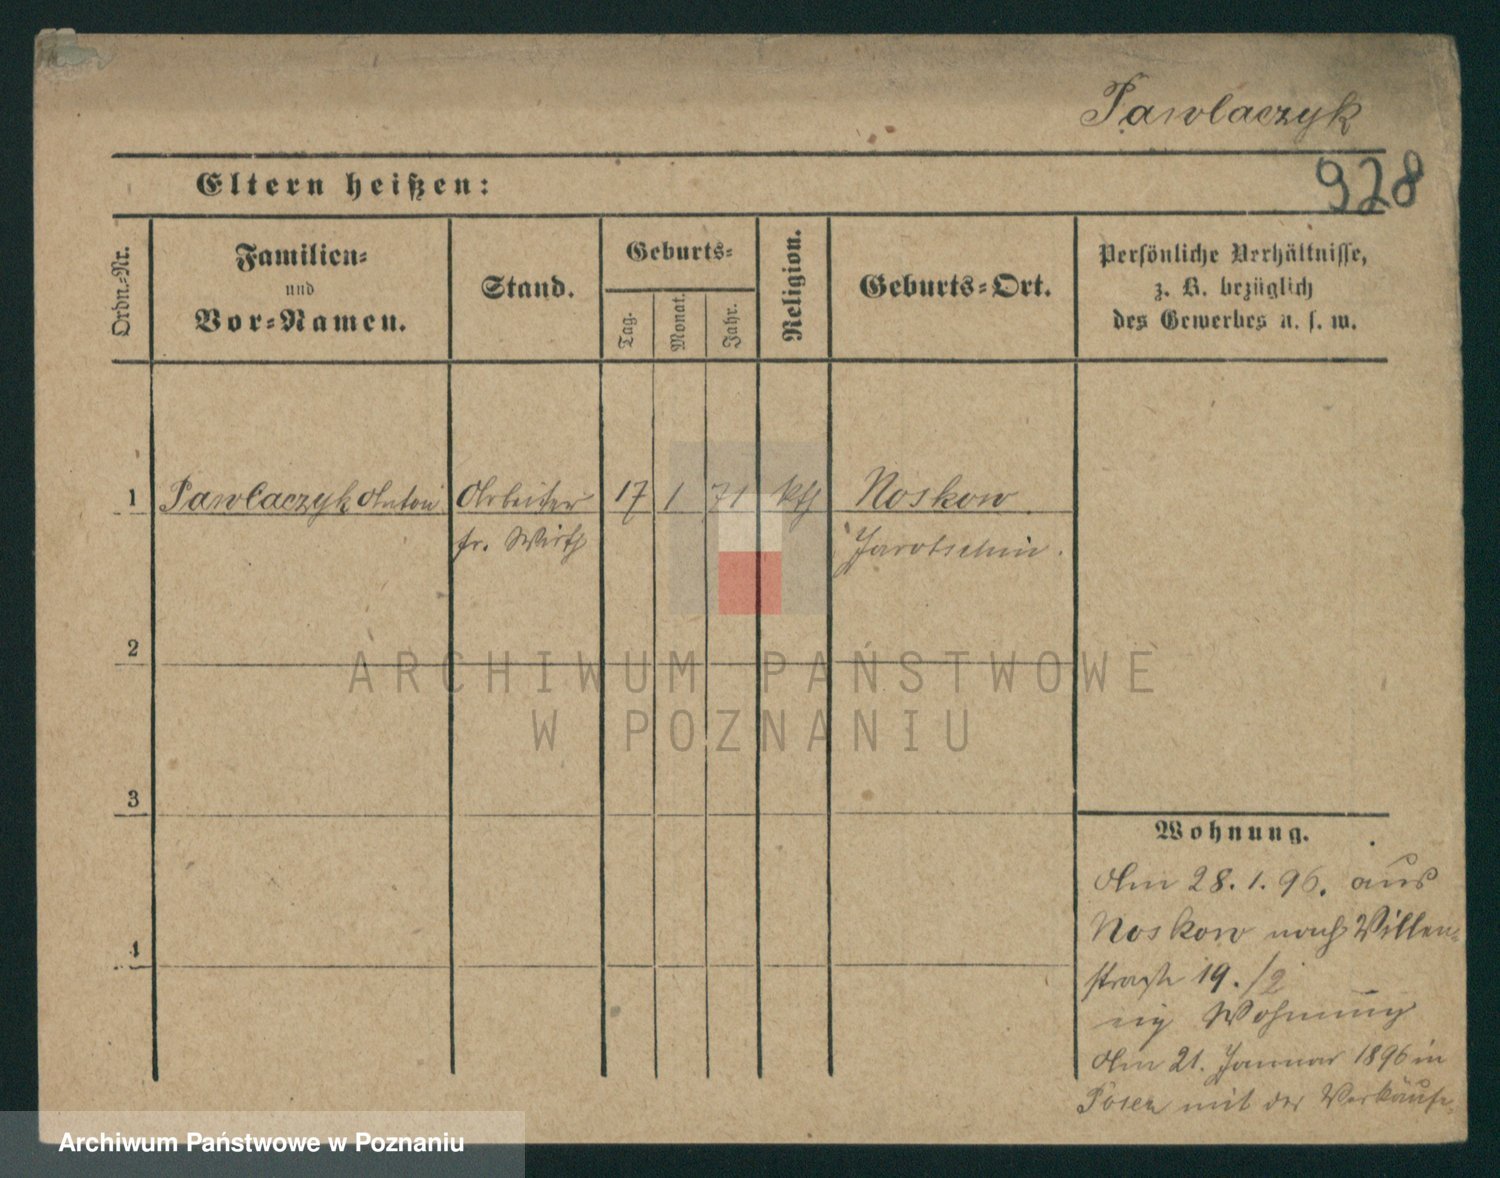 Pawlaczyk
928
Eltern heißen:
Ordn.-Nr.
Familien-
und
Vor-Namen.
Stand.
Geburts-
Tag.
Monat.
Jahr.
Religion.
Geburts-Ort.
Persönliche Verhältnisse,
z. B. bezüglich
des Gewerbes u. s. w.
1 Pawlaczyk Anton Arbeiter 17 1 71 kth Noskow.
fr. Wirth Jarotschin.
2
3
4
ARCHIWUM PAŃSTWOWE
W POZNANIU
Wohnung.
Am 28. 1. 96. aus
Noskow nach Villen-
straße 19./2
eig Wohnung
Am 21. Januar 1896 in
Posen mit der Verkäufe-
Archiwum Państwowe w Poznaniu